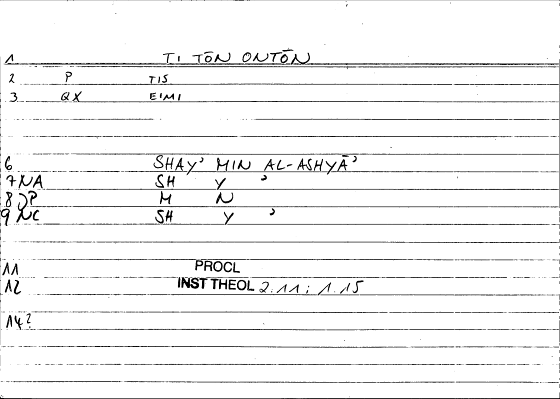 1 TI TŌN ONTŌN
2 P TIS
3 QX EIMI
6 SHAYʾ MIN AL-ASHYĀʾ
7 NA SH Y ʾ
8 JP M N
9 NC SH Y ʾ
11 PROCL
12 INST THEOL 2.11; 1.15
14?